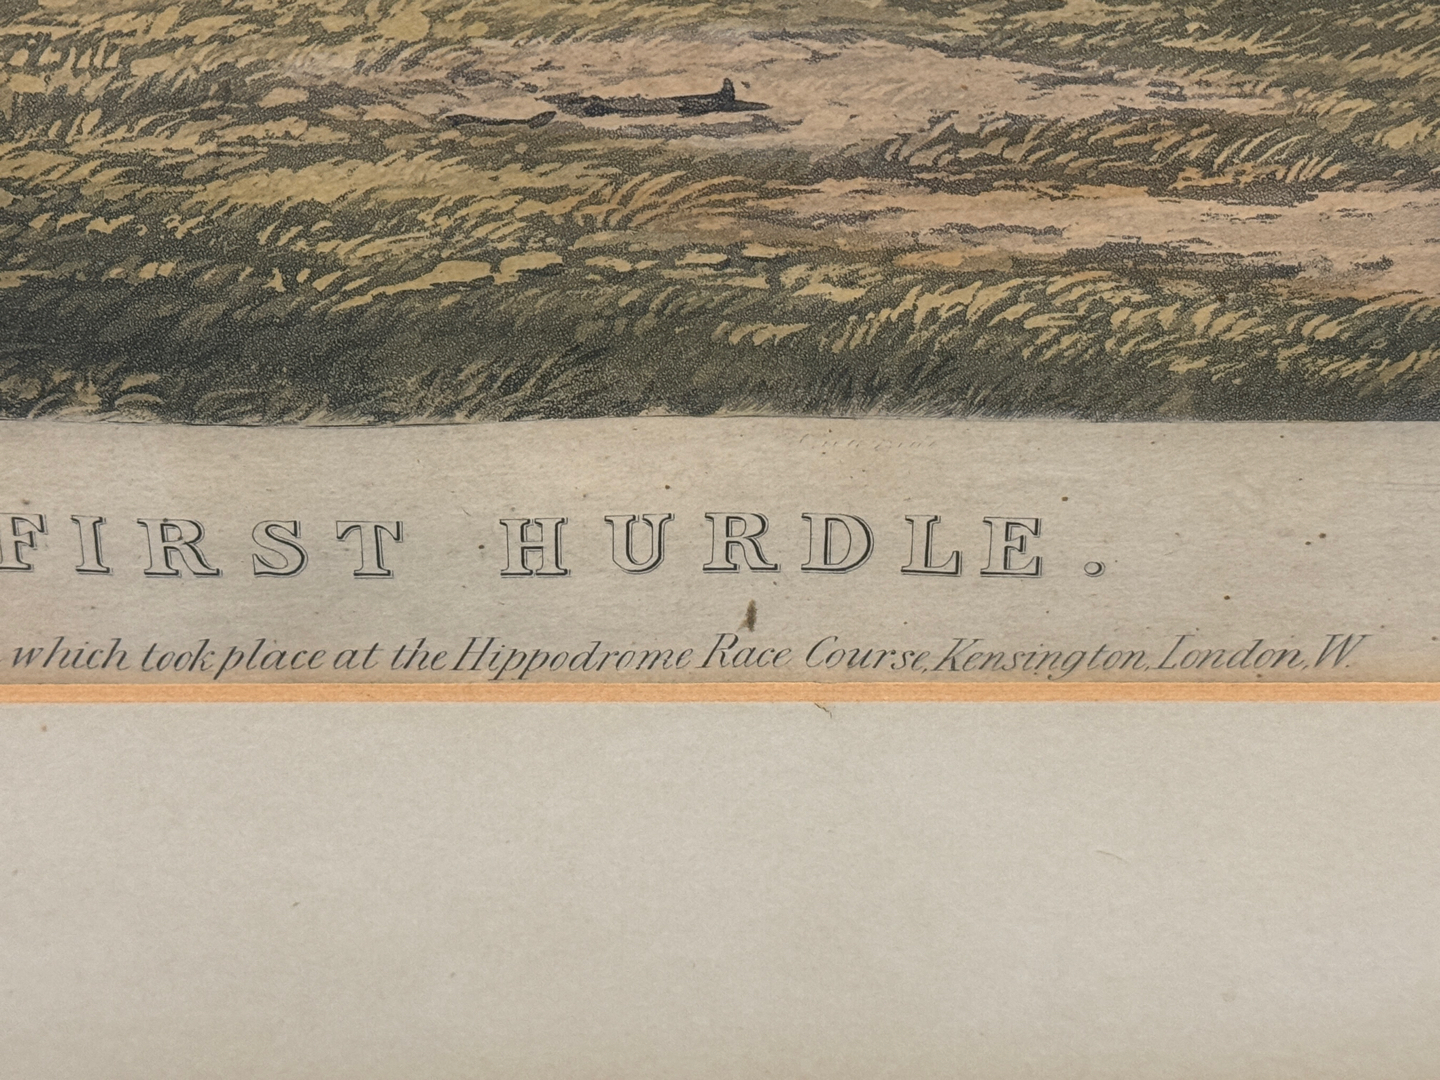 FIRST HURDLE.
which took place at the Hippodrome Race Course, Kensington, London, W.